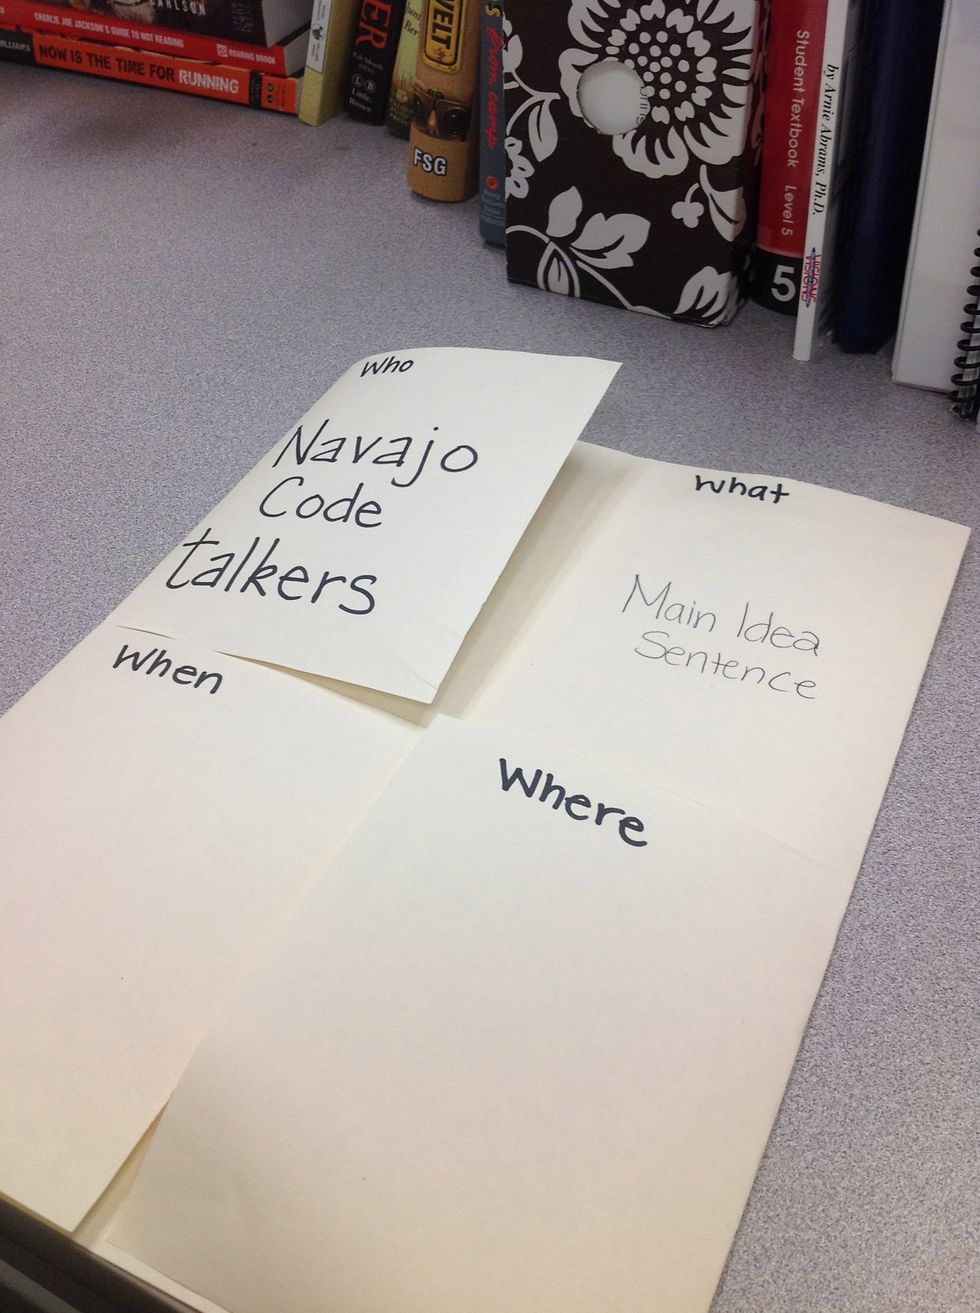 CARLSON
CHARLIE JOE JACKSON'S GUIDE TO NOT READING
ROARING BROOK
NOW IS THE TIME FOR RUNNING
ER
Little,
Brown
VELT
FSG
Student Textbook Level 5
5
by Arnie Abrams, Ph.D.
Who
Navajo
Code
talkers
What
Main Idea
Sentence
When
Where